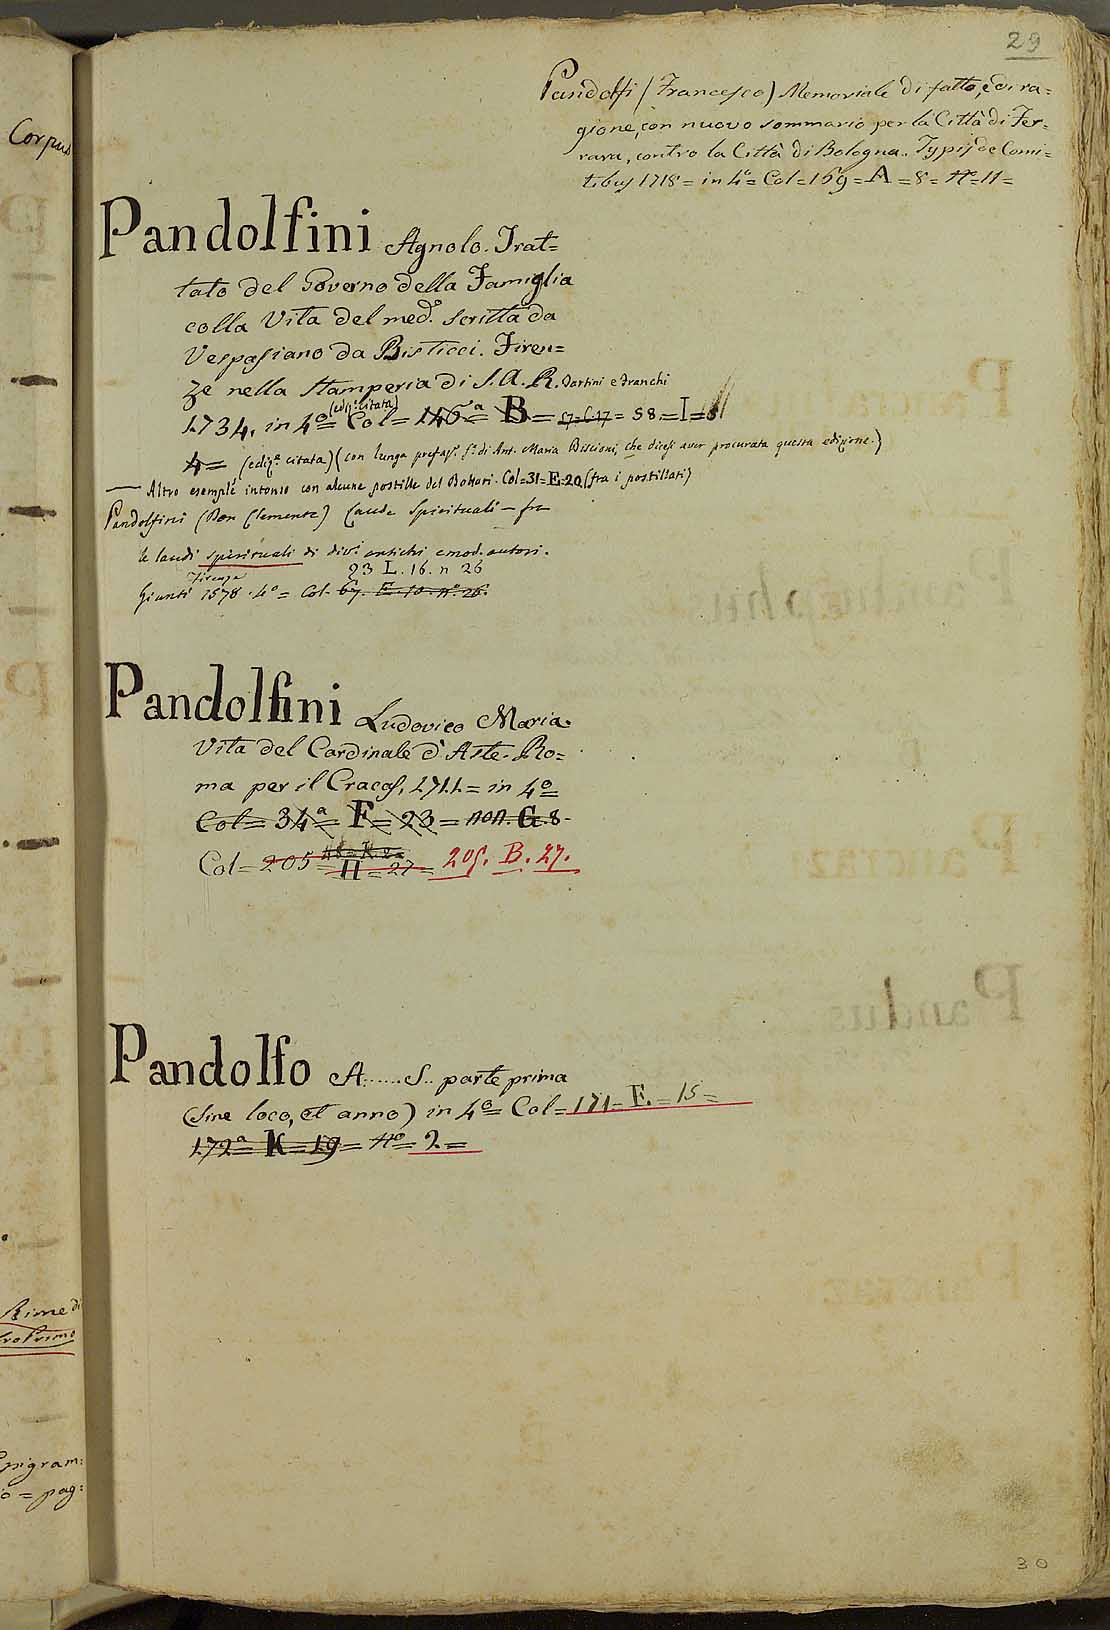 29
Pandolfi (Francesco) Memoriale di fatto, e di ra=
gione, con nuovo sommario per la Città di Fer=
rara, contro la Città di Bologna. Typis de Comi=
tibus 1718 = in 4º = Col = 169 = A = 8 = nº = 11 =
Pandolfini Agnolo. Trat=
tato del Governo della Famiglia
colla Vita del med.º scritta da
Vespasiano da Bisticci. Firen=
ze nella Stamperia di S. A. R. Tartini e Franchi
(ediz.e citata)
1734. in 4º = Col = 146ª = B = 17 = C. 17 = 58. = I = 8
4 = (ediz.e citata) (con lunga prefaz.e di Ant. Maria Biscioni, che dicesi aver procurata questa edizione.)
— Altro esemplé intonso con alcune postille del Bottari. Col = 31 = E = 20 (fra i postillati)
Pandolfini (Don Clemente) Laude Spirituali — fra
le laudi spirituali di div.i antichi e mod. autori.
Firenze 23 L. 16. n 26
Giunti 1578. 4º = Col. 67. E. 10. nº. 26.
Pandolfini Ludovico Maria.
Vita del Cardinale d'Aste. Ro=
ma per il Cracas, 1711. = in 4º =
Col = 34ª = F = 23 = non. G. 8.
Col = 205 = H = 27 = 205. B. 27.
Pandolfo A......S.. parte prima
(Sine loco, et anno) in 4º = Col = 171 = E. = 15 =
172ª = K = 19 = nº = 2 =
30
Corpus
Rime di
Epigram:
io = pag: